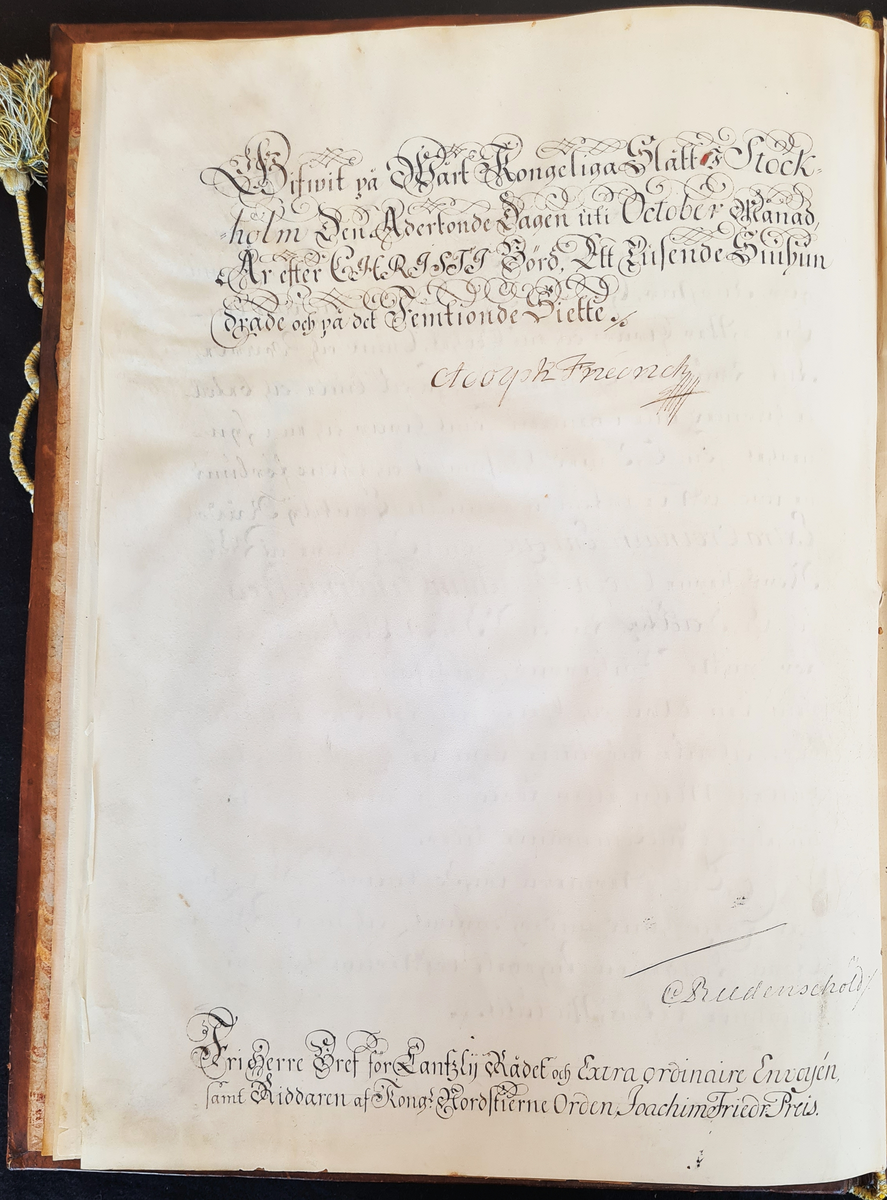 Gifwit på Wårt Kongeliga Slått i Stock-
holm Den Adertonde Dagen uti October Månad,
År efter CHRISTI Börd, Ett Tusende Siuhun
drade och på det Femtionde Siette
Adolph Friedrich
CRudenschöld
FriHerre Bref för Cantzlij Rådet och Extra ordinaire Envoijén,
samt Riddaren af Kongl Nordstierne Orden, Joachim Friedr. Preis.